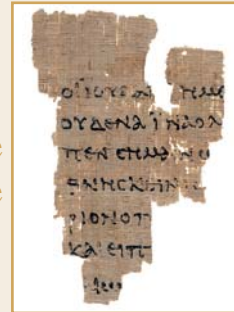 ΟΙ ΙΟΥΔΑ ΗΜΕ
ΟΥΔΕΝΑ ΪΝΑ Ο Λ
ΠΕΝ ϹΗΜΑΙΝΩ
ΘΝΗϹΚΕΙΝ
ΡΙΟΝ Ο Π
ΚΑΙ ΕΙΠ